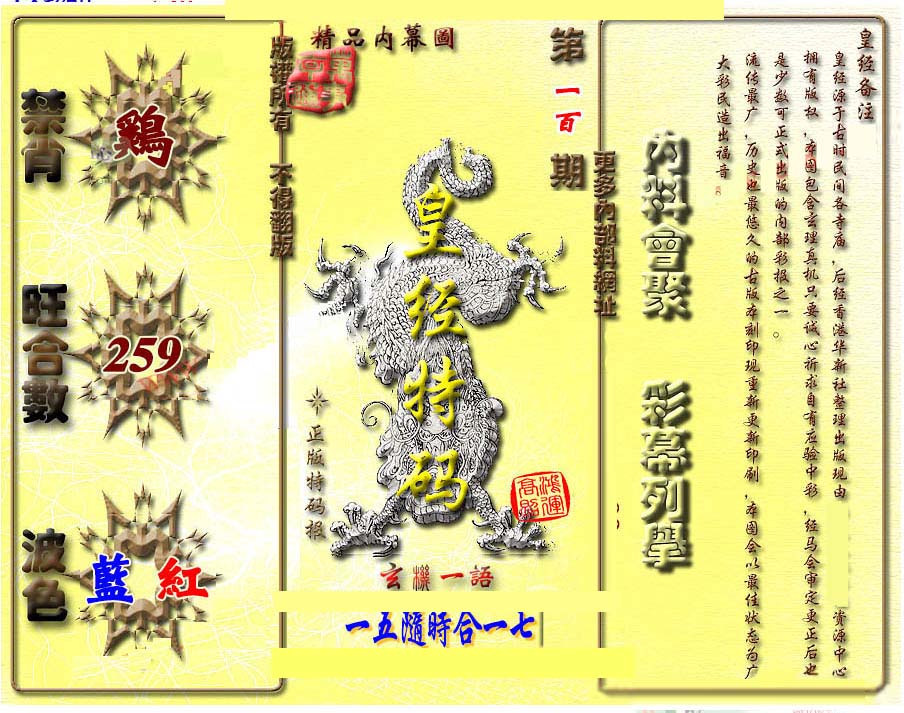 精品内幕圖
第一百期
版權所有　不得翻版
更多內部料網址
禁肖
鷄
旺合數
259
波色
藍　紅
皇经特码
正版特码报
鴻運高照
玄機一語
一五隨時合一七
內料會聚　彩幕列舉
皇经备注
皇经源于古时民间各寺庙，后经香港华新社整理出版现由　资源中心
拥有版权，本图包含玄理真机只要诚心祈求自有应验中彩，经马会审定更正后也
是少数可正式出版的内部彩报之一。
流传最广，历史也最悠久的古版本刻印现重新更新印刷，本图会以最佳状态为广
大彩民造出福音